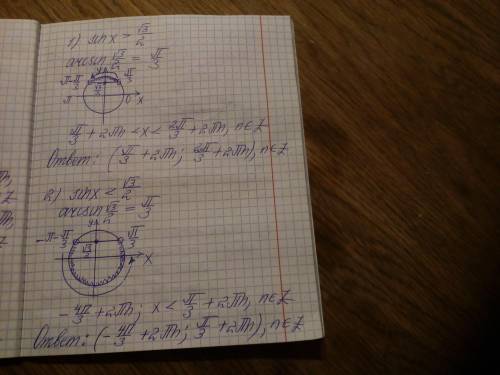 1) sin x > √3/2
arcsin √3/2 = π/3
y
π - π/3 π/3
√3/2
π 0 x
π/3 + 2πn < x < 2π/3 + 2πn, n∈Z
Ответ: (π/3 + 2πn; 2π/3 + 2πn), n∈Z
2) sin x < √3/2
arcsin √3/2 = π/3
y
-π - π/3 π/3
√3/2
x
-4π/3 + 2πn; x < π/3 + 2πn, n∈Z
Ответ: (-4π/3 + 2πn; π/3 + 2πn), n∈Z